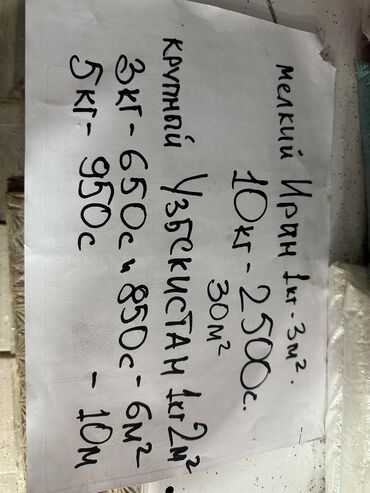 мелкий Иран 1кг-3м².
10кг-2500с.
30м²
крупный Узбекистан 1кг2м²
3кг-650с и 850с-6м²
5кг-950с - 10м